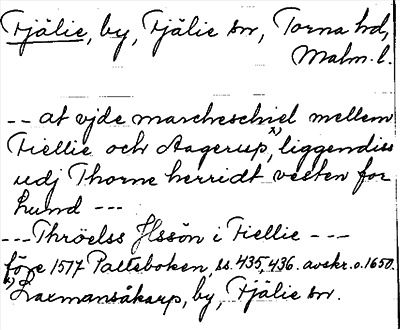 Fjälie, by, Fjälie sn, Torna hd,
Malm. l.
-- at vjde marcheschiel mellem
Fiellie och Aagerup, x) liggendiss
udj Thorne herridt vesten for
Lund ---
--- Thröelss Jlssön i Fiellie ---
före 1517 Palteboken, ss. 435, 436. avskr. o. 1650.
x) Laxmansåkarp, by, Fjälie sn.